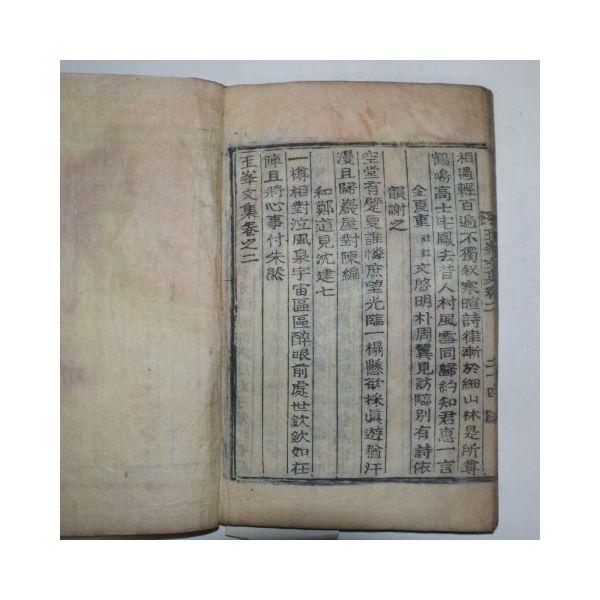 相過輕百遍不獨叙寒暄詩律漸於細山林是所尊
鶴鳴高士宅鳳去昔人村風雪同歸約知君惠一言
金夏重 文啓明朴周翼見訪臨別有詩依
韻謝之
空堂有躄夏誰憐庶望光臨一榻懸欲採眞遊猶汗
漫且歸巖屋對陳編
和鄭道見沈建七
一樽相對泣風泉宇宙區區醉眼前處世欽欽如在
陣且將心事付朱
玉峯文集卷之二